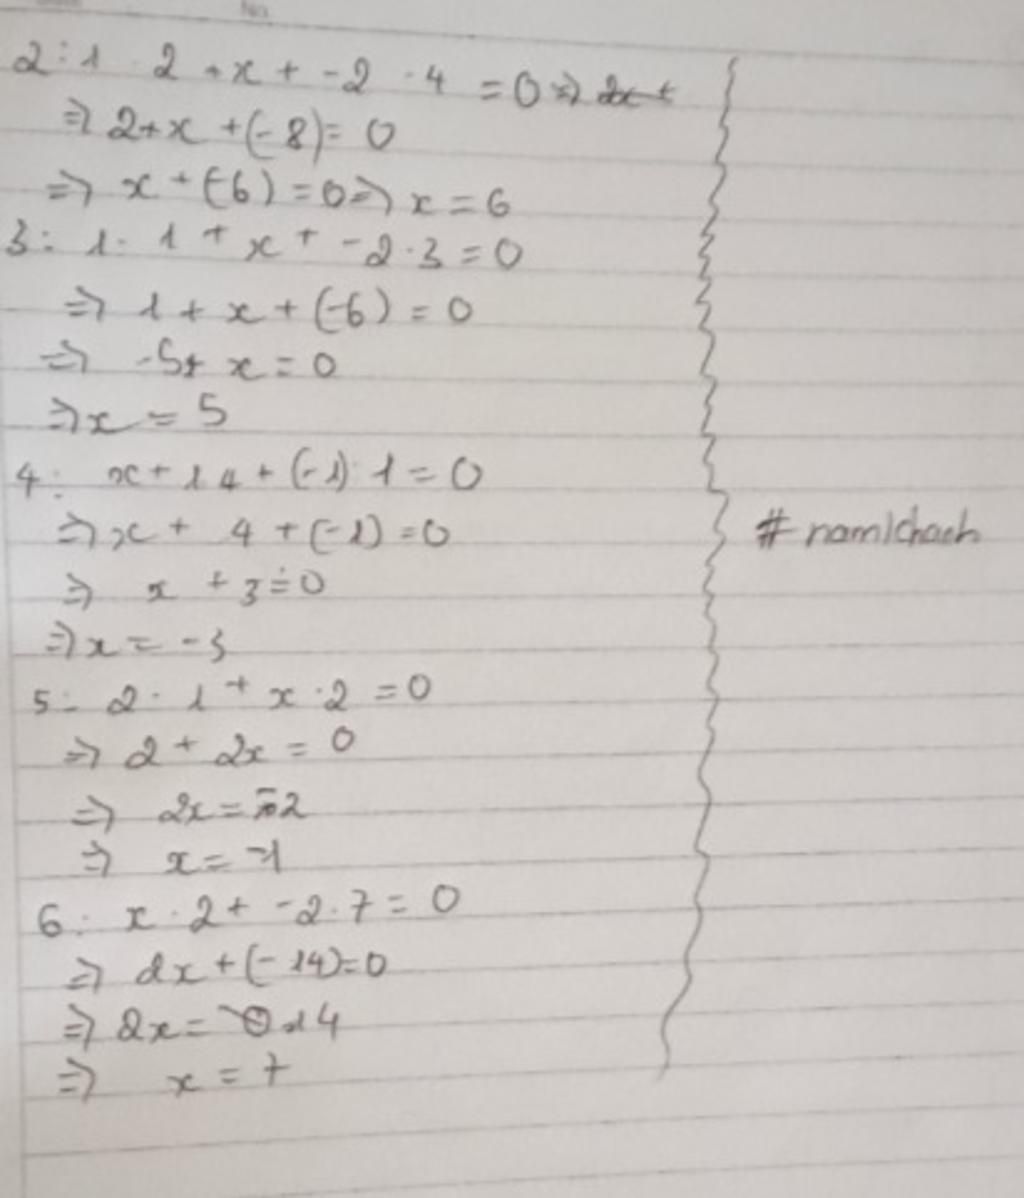 No
2: 1 . 2 + x + -2 . 4 = 0 => 2x +
=> 2+x +(-8)= 0
=> x + (-6) = 0 => x = 6
3: 1. 1 + x + -2.3 = 0
=> 1 + x + (-6) = 0
=> -5+ x = 0
=> x = 5
4: x + 1 4 + (-1) 1 = 0
=> x + 4 + (-1) = 0
=> x + 3 = 0
=> x = -3
5: 2 . 1 + x . 2 = 0
=> 2 + 2x = 0
=> 2x = -2
=> x = -1
6: x . 2 + -2.7 = 0
=> 2x + (-14)=0
=> 2x = 14
=> x = 7
# namlchach